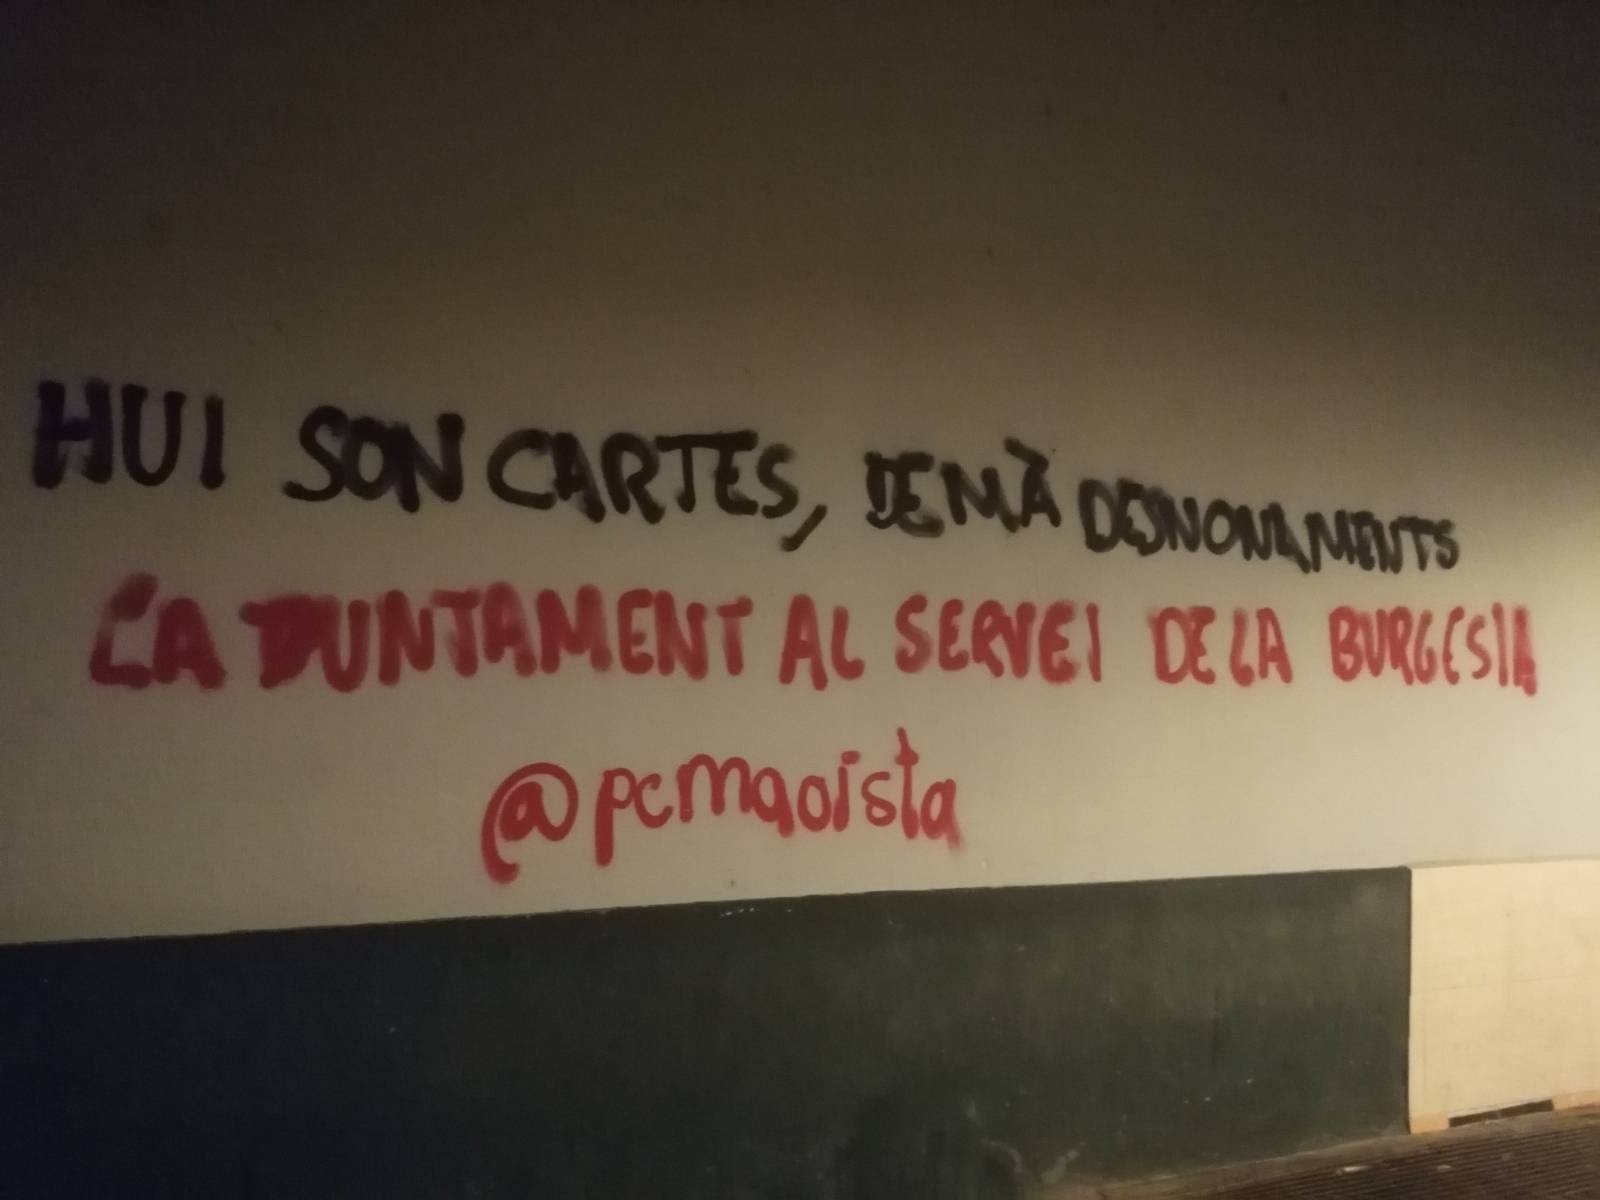 HUI SON CARTES, DEMÀ DESNONAMENTS
L'AJUNTAMENT AL SERVEI DE LA BURGESIA
@pcmaoista